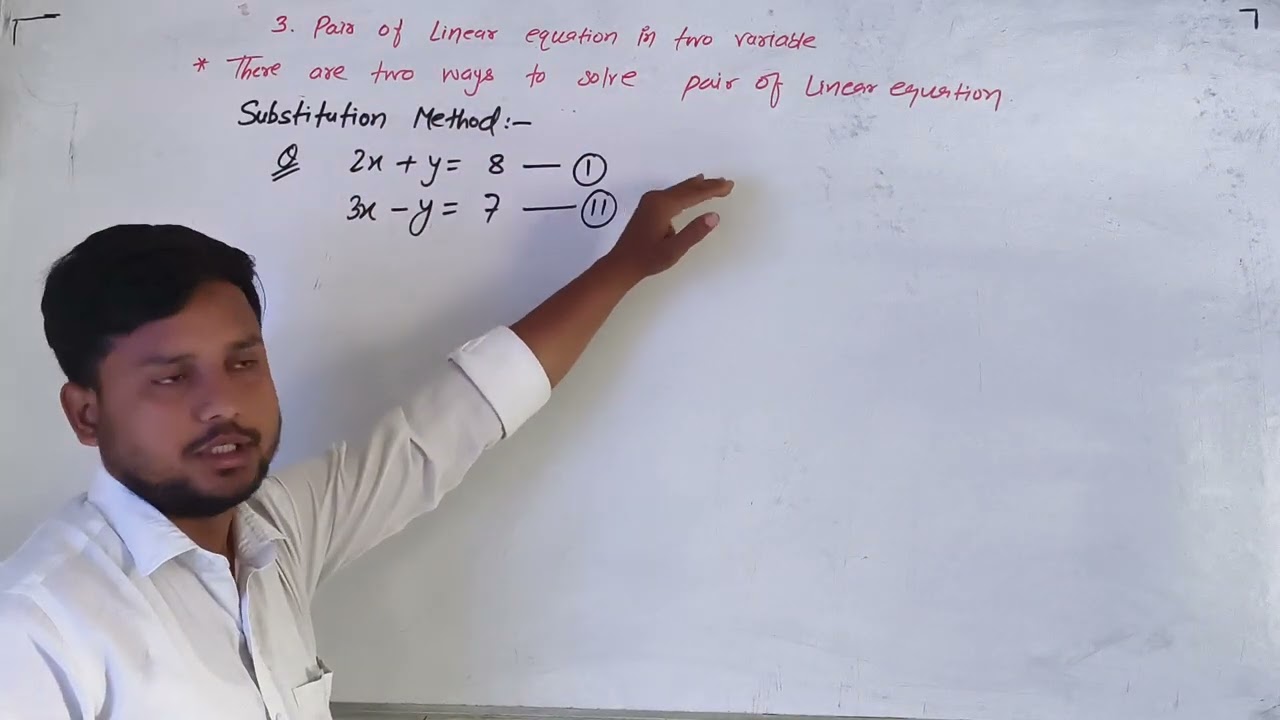 3. Pair of Linear equation in two variable
* There are two ways to solve pair of Linear equation.
Substitution Method:-
Q 2x + y = 8 — ①
3x - y = 7 — ⑪